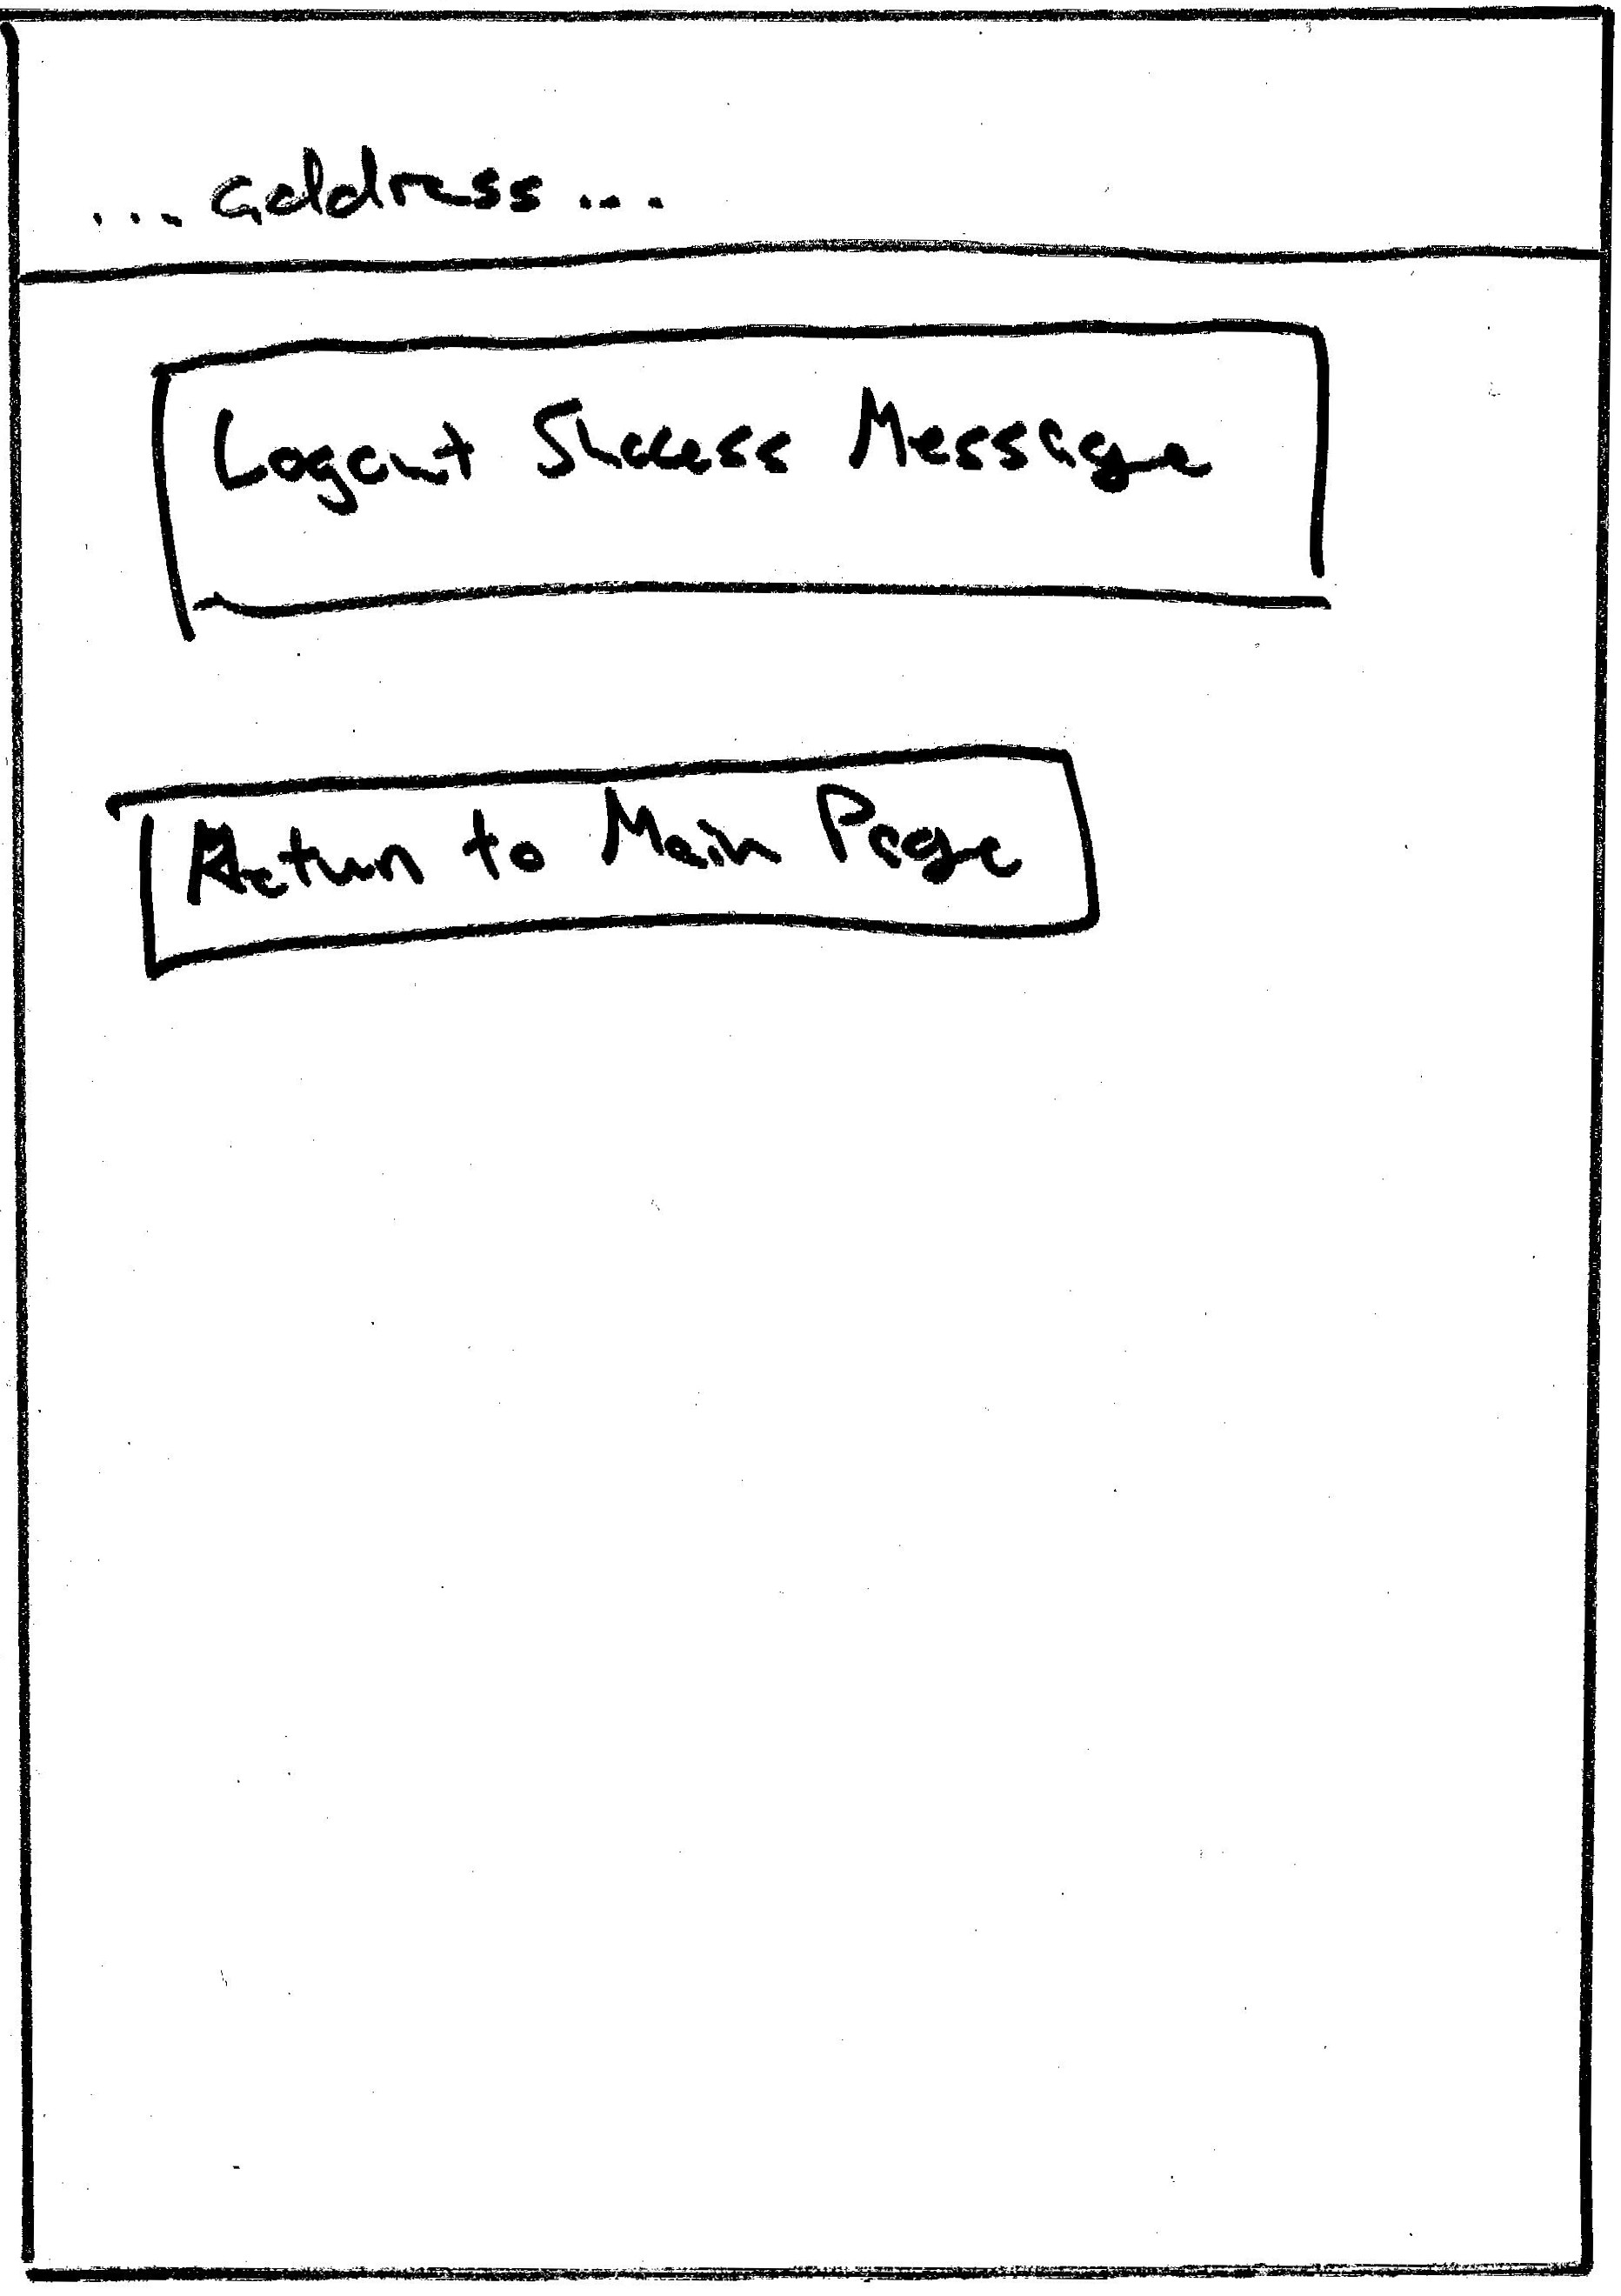 ... address ...
Logout Success Message
Return to Main Page